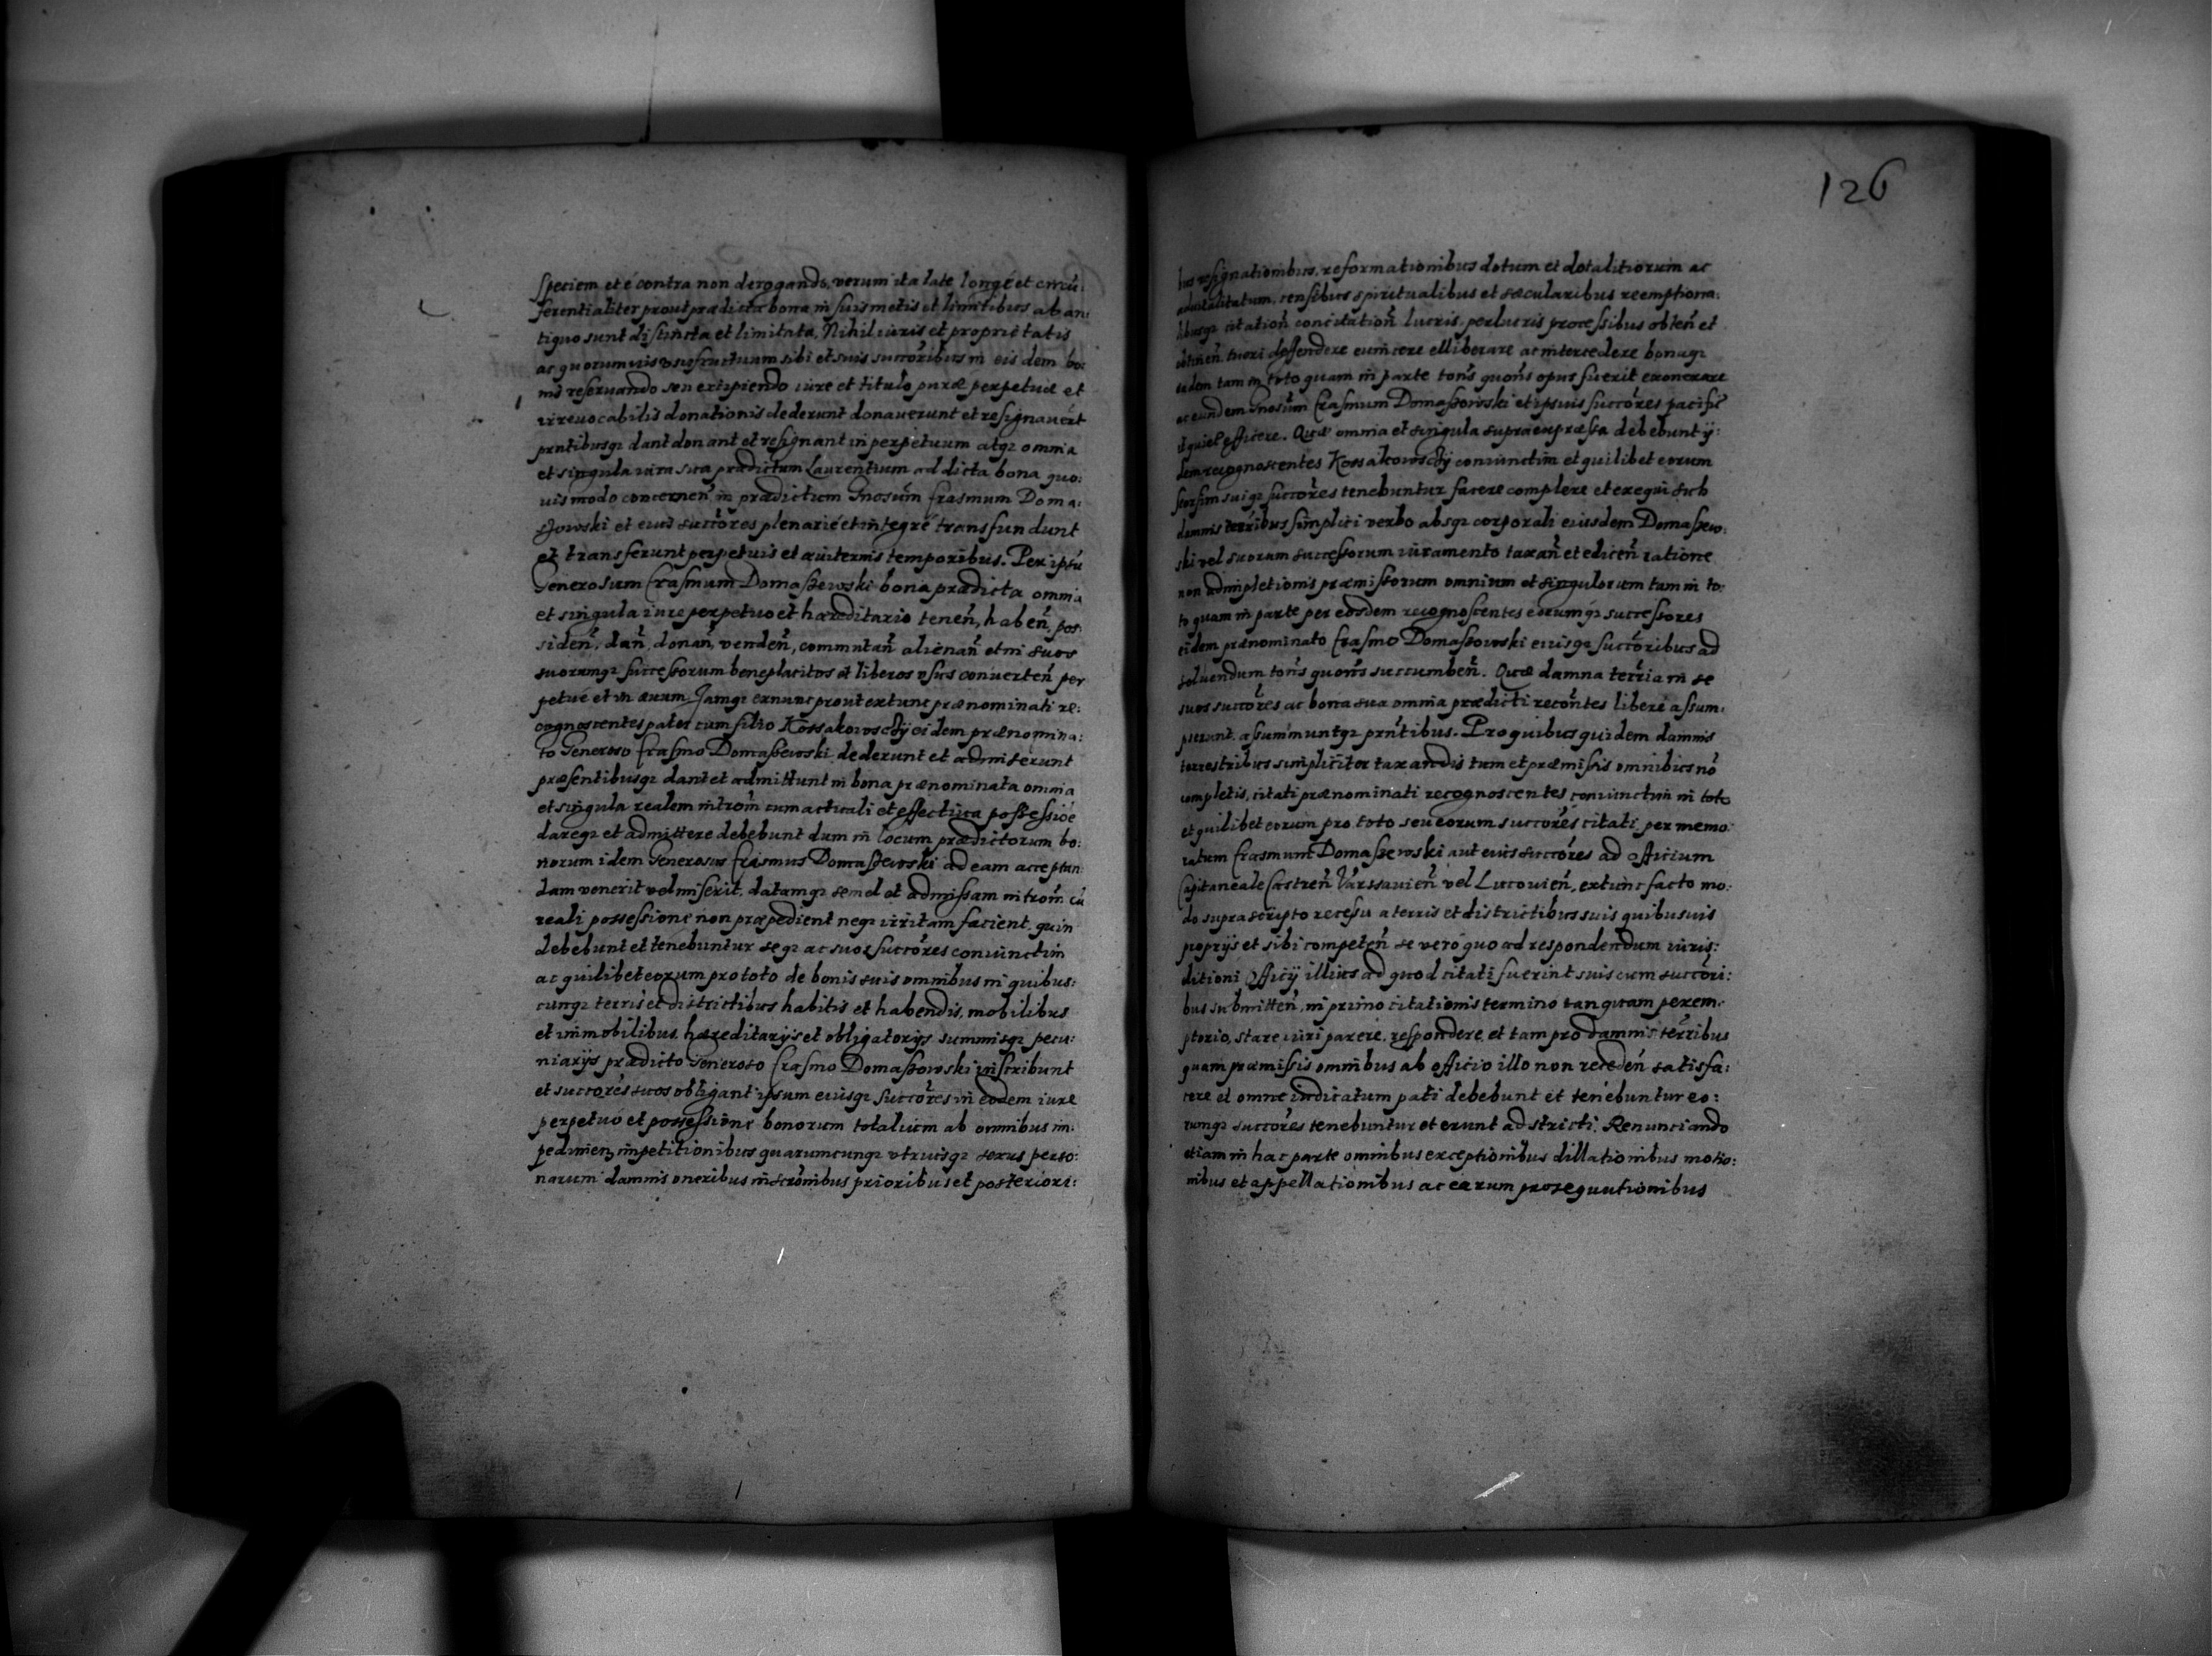 speciem et è contra non derogando, verum ita late longè et circū:
ferentialiter prout prædicta bona in suis metis et limitibus ab an:
tiquo sunt distincta et limitata, Nihil iuris et proprietatis
ac quorumuis vsufructuum sibi et suis succoribus in eisdem bo:
nis reseruando seu excipiendo iure et titulo puræ perpetuæ et
irreuocabilis donationis dederunt donauerunt et resignauert
prntibusq; dant donant et resignant in perpetuum atq; omnia
et singula iura sua prædictum Laurentium ad dicta bona quo:
uismodo concernen̄ in prædictum Gnosum Erasmum Doma:
szowski et eius succores plenariè et integrè transfundunt
et transferunt perpetuis et æuiternis temporibus. Per ipsū
Generosum Erasmum Domaszewski bona prædicta omnia
et singula iure perpetuo et hæreditario tenen̄, haben̄, pos:
siden̄, dan̄, donan̄, venden̄, commutan̄ alienan̄ et in suos
suorumq; successorum beneplacitos et liberos vsus conuerten̄ per
petuè et in æuum. Jamq; exnunc prout extunc prænominati re:
cognoscentes pater cum filio Kossakowscÿ eidem prænomina:
to Generoso Erasmo Domaszewski dederunt et admiserunt
præsentibusq; dant et admittunt in bona prænominata omnia
et singula realem introm̄ cum actuali et effectiua possessiōe
dareq; et admittere debebunt dum in locum prædictorum bo:
norum idem Generosus Erasmus Domaszewski ad eam acceptan:
dam venerit vel miserit, datamq; semel et admissam introm̄ cū
reali possessione non præpedient neq; irritam facient, quin
debebunt et tenebuntur seq; ac suos succores coniunctim
ac quilibet eorum pro toto de bonis suis omnibus in quibus:
cunq; terris et districtibus habitis et habendis, mobilibus
et immobilibus hæreditarijs et obligatorijs summisq; pecu:
niarijs prædicto Generoso Erasmo Domaszowski inscribunt
et succores suos obligant ipsum eiusq; succores in eodem iure
perpetuo et possessione bonorum totalium ab omnibus im:
pedimen̄ impetitionibus quarumcunq; vtriusq; sexus perso:
narum damnis oneribus inscrōnibus prioribus et posteriori:
126
bus resignationibus, reformationibus dotum et dotalitiorum ac
aduitalitatum, censibus spiritualibus et sæcularibus reemptiona:
libusq; citation̄ concitation̄ lucris, perlucris processibus obten̄ et
obtinen̄ tueri deffendere euincere elliberare ac intercedere bonaq;
eadem tam in toto quam in parte tons quons opus fuerit exonerare
ac eundem Gnosum Erasmum Domaszowski et ipsius succores pacific̄
et quiet̄ efficere. Quæ omnia et singula supraexpræssa debebunt ij:
dem recognoscentes Kossakowscÿ coniunctim et quilibet eorum
seorsim suiq; succores tenebuntur facere complere et exequi sub
damnis terribus simplici verbo absq; corporali eiusdem Domaszew:
ski vel suorum successorum iuramento taxan̄ et edicen̄ ratione
non adimpletionis præmissorum omnium et singulorum tam in to:
to quam in parte per eosdem recognoscentes eorumq; successores
eidem prænominato Erasmo Domaszowski eiusq; succoribus ad
soluendum tons quons succumben̄. Quæ damna terria in se
suos succores ac bona sua omnia prædicti recontes liberè assum:
pserunt, assummuntq; prntibus. Pro quibus quidem damnis
terrestribus simpliciter taxandis tum et præmissis omnibus nō
completis, citati prænominati recognoscentes coniunctim in toto
et quilibet eorum pro toto seu eorum succores citati per memo:
ratum Erasmum Domaszewski aut eius succores ad officium
Capitaneale Castren̄ Varssauien̄ vel Lucouien̄, extunc facto mo:
do suprascripto recessu a terris et districtibus suis quibusuis
proprijs et sibi competen̄ se verò quo ad respondendum iuris:
ditioni officij illius ad quod citati fuerint suis cum succori:
bus submitten̄, in primo citationis termino tanquam perem:
ptorio, stare iuri parere, respondere, et tam pro damnis terribus
quam præmissis omnibus ab officio illo non receden̄ satisfa:
cere et omne iudicatum pati debebunt et tenebuntur eo:
rumq; succores tenebuntur et erunt adstricti. Renunciando
etiam in hac parte omnibus exceptionibus dillationibus motio:
nibus et appellationibus ac earum prosequutionibus